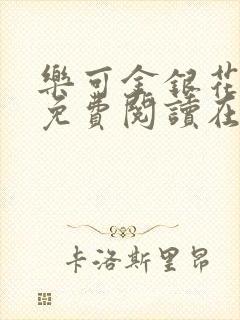 樂可金銀花
免費閱讀在
卡洛斯里昂